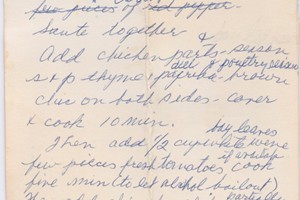 few pieces of red pepper
Saute together &
Add chicken parts - season
dill & poultry season
s+p thyme + paprika - brown
chic on both sides - cover
& cook 10 min.
bay leaves
Then add 1/2 cup white wine
if available
few pieces fresh tomatoes cook
five min (to let alcohol boil out)
partially